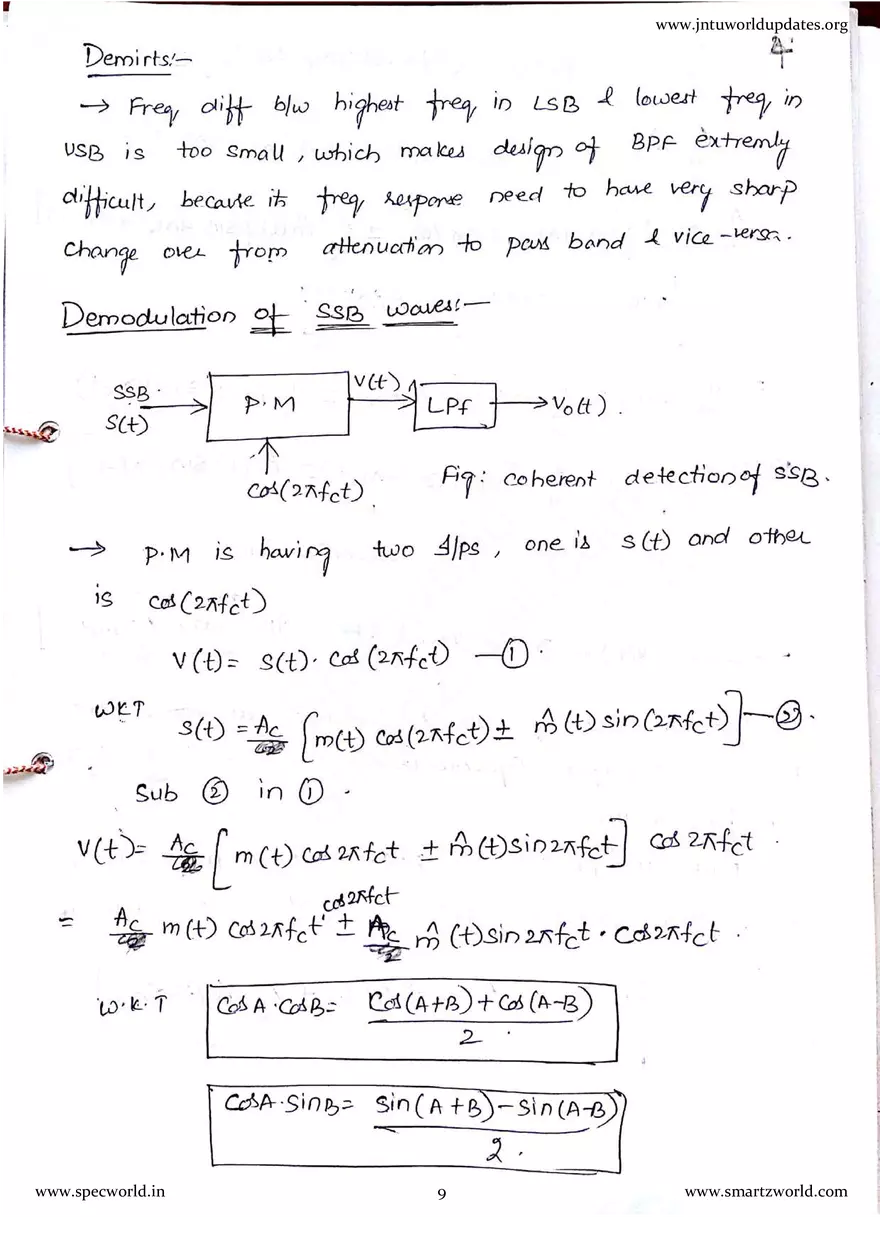 www.jntuworldupdates.org
Demirts:-
→ Freq diff b/w highest freq in LSB & lowest freq in
USB is too small, which makes design of BPF extremly
difficult, because its freq response need to have very sharp
change over from attenuation to pass band & vice-versa.
Demodulation of SSB waves:-
SSB
S(t)
P.M
V(t)
LPf
→ Vo(t).
cos(2πfct)
Fig: coherent detection of SSB.
→ P.M is having two I/ps, one is s(t) and other
is cos(2πfct)
V(t) = s(t). cos(2πfct) —①.
WKT
s(t) = Ac/2 [m(t) cos(2πfct) ± m̂(t) sin(2πfct)] —②.
Sub ② in ①.
V(t) = Ac/2 [m(t) cos 2πfct ± m̂(t) sin 2πfct] cos 2πfct.
= Ac/2 m(t) cos 2πfct cos 2πfct ± Ac/2 m̂(t) sin 2πfct . cos 2πfct.
W.K.T
CosA.CosB = Cos(A+B)+Cos(A-B)/2.
CosA.SinB = Sin(A+B)-Sin(A-B)/2.
www.specworld.in
9
www.smartzworld.com